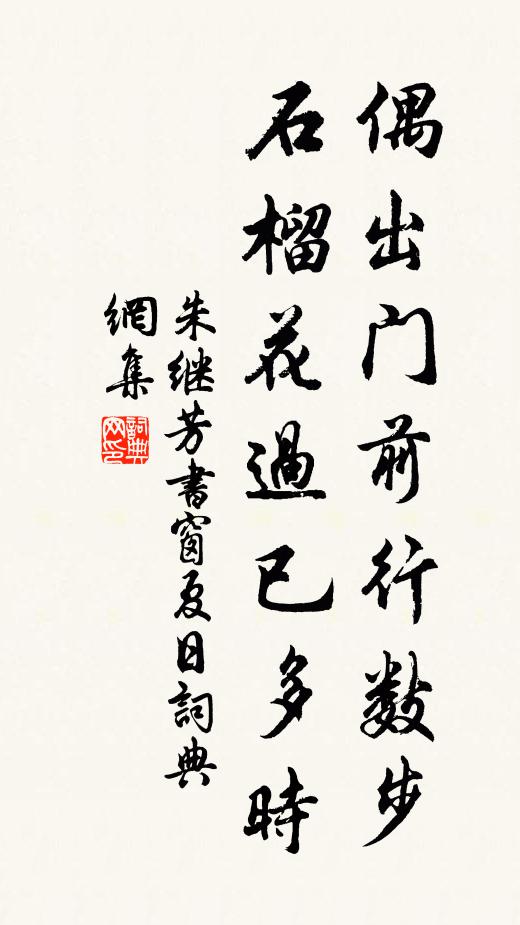 偶出门前行数步
石榴花過已多時
朱继芳書窗夏日詞典
網集
詞典网印